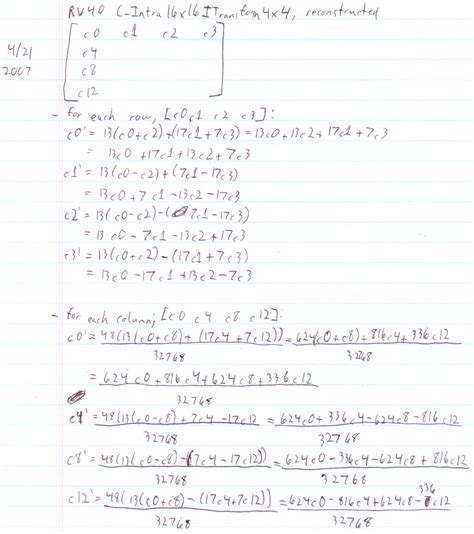 RV40 C-Intra16x16ITransform4x4, reconstructed
4/21
2007
[c0 c1 c2 c3
c4
c8
c12]
- for each row, [c0 c1 c2 c3]:
c0' = 13(c0+c2)+(17c1+7c3) = 13c0+13c2+17c1+7c3
= 13c0+17c1+13c2+7c3
c1' = 13(c0-c2)+(7c1-17c3)
= 13c0+7c1-13c2-17c3
c2' = 13(c0-c2)-(7c1-17c3)
= 13c0-7c1-13c2+17c3
c3' = 13(c0+c2)-(17c1+7c3)
= 13c0-17c1+13c2-7c3
- for each column, [c0 c4 c8 c12]:
c0' = 48(13(c0+c8)+(17c4+7c12)) = 624(c0+c8)+816c4+336c12
32768 32768
= 624c0+816c4+624c8+336c12
32768
c4' = 48(13(c0-c8)+7c4-17c12 = 624c0+336c4-624c8-816c12
32768 32768
c8' = 48(13(c0-c8)-(7c4-17c12)) = 624c0-336c4-624c8+816c12
32768 32768
c12' = 48(13(c0+c8)-(17c4+7c12)) = 624c0-816c4+624c8-336c12
32768 32768